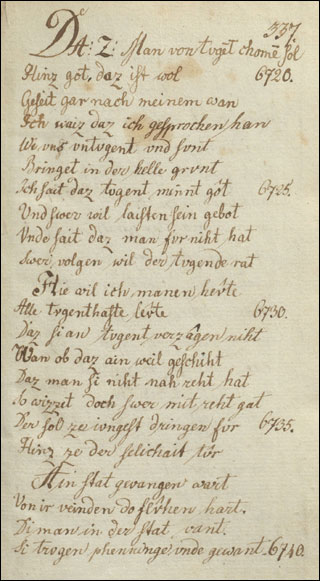 337.
Dc
Az: Z: Man von tvget chomē sol
Hinz got, daz ist wol 6720.
Geseit gar nach meinem wan
Ich waiz daz ich gesprochen han
We vns vntvgent vnd svnt
Bringet in der helle grvnt
Ich sait daz tvgent minnt got 6725.
Und swer wil laisten sein gebot
Vnde sait daz man fvr niht hat
Swer volgen wil der tvgende rat
Hie wil ich manen herte
Alle tvgenthafte levte 6730.
Daz si an tvgent verzagen niht
Wan ob daz ain weil geschiht
Daz man si niht nah reht hat
So wizzit doch swer mit reht gat
Der sol ze ivngest dringen fvr 6735.
Hinz ze der selichait tvr
Ain stat gewangen wart
Von ir veinden do si verhen hart.
Di man in der stat vant.
Si trvgen phenninge vnde gewant 6740.